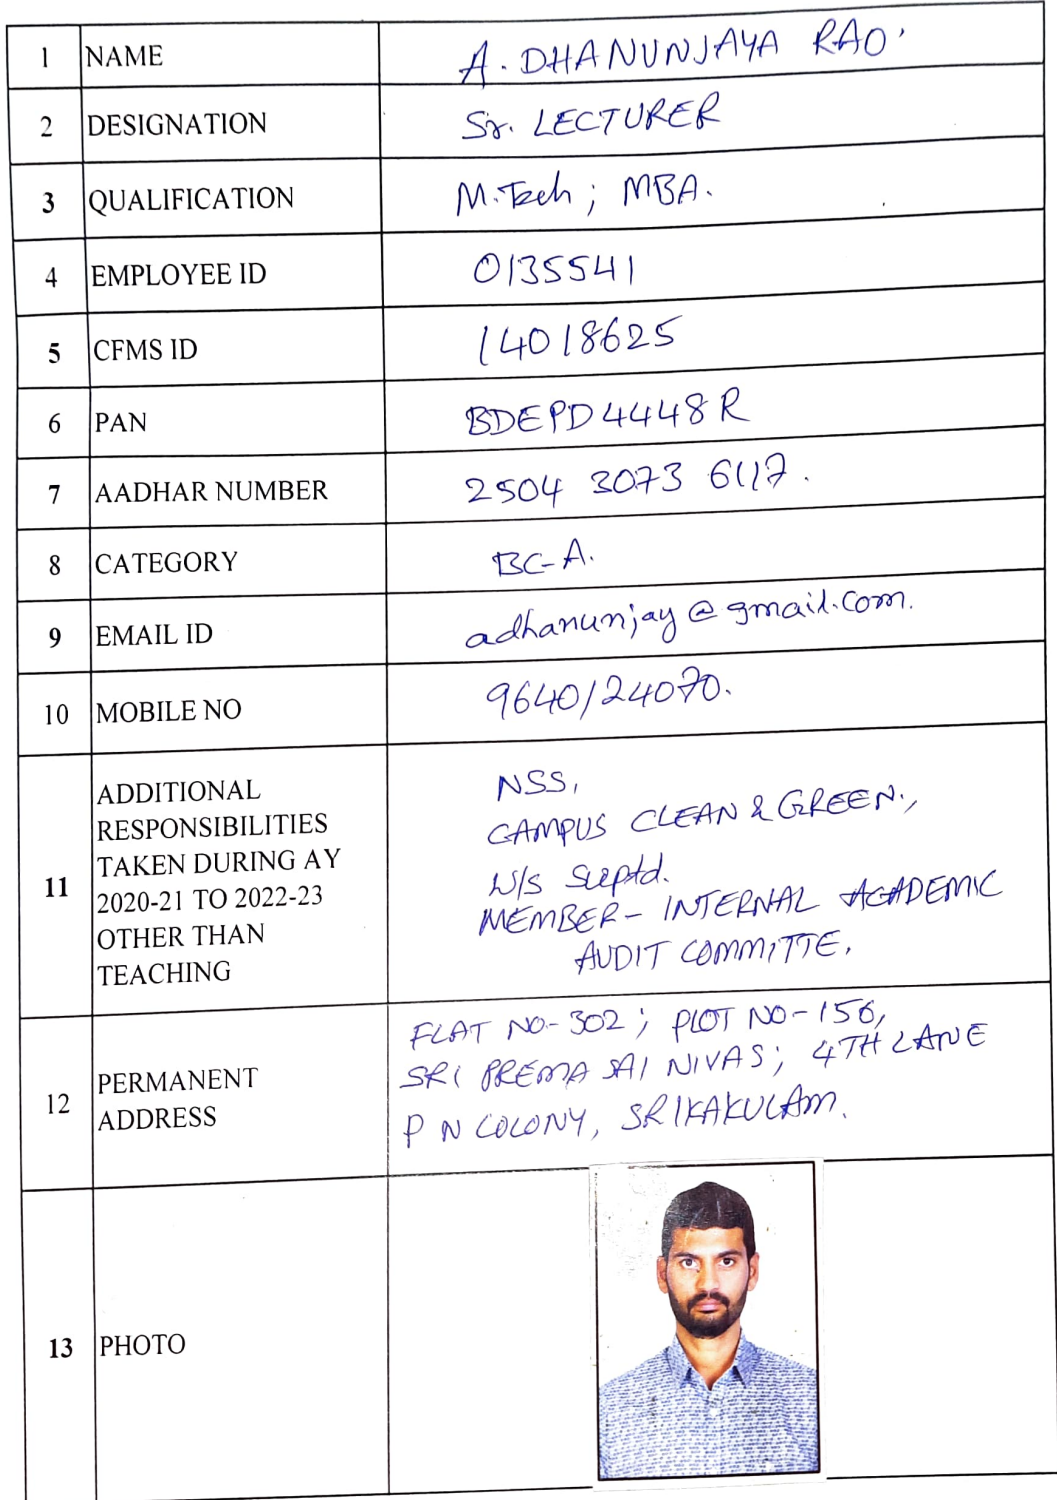 1 NAME A. DHANUNJAYA RAO.
2 DESIGNATION Sr. LECTURER
3 QUALIFICATION M.Tech; MBA.
4 EMPLOYEE ID 0135541
5 CFMS ID 14018625
6 PAN BDEPD4448R
7 AADHAR NUMBER 2504 3073 6117.
8 CATEGORY BC-A.
9 EMAIL ID adhanunjay@gmail.com.
10 MOBILE NO 9640124070.
11 ADDITIONAL
RESPONSIBILITIES
TAKEN DURING AY
2020-21 TO 2022-23
OTHER THAN
TEACHING
NSS,
CAMPUS CLEAN & GREEN.,
W/S Suptd.
MEMBER- INTERNAL ACADEMIC
AUDIT COMMITTE,
12 PERMANENT
ADDRESS
FLAT NO-302; PLOT NO-156,
SRI PREMA SAI NIVAS; 4TH LANE
P N COLONY, SRIKAKULAM.
13 PHOTO